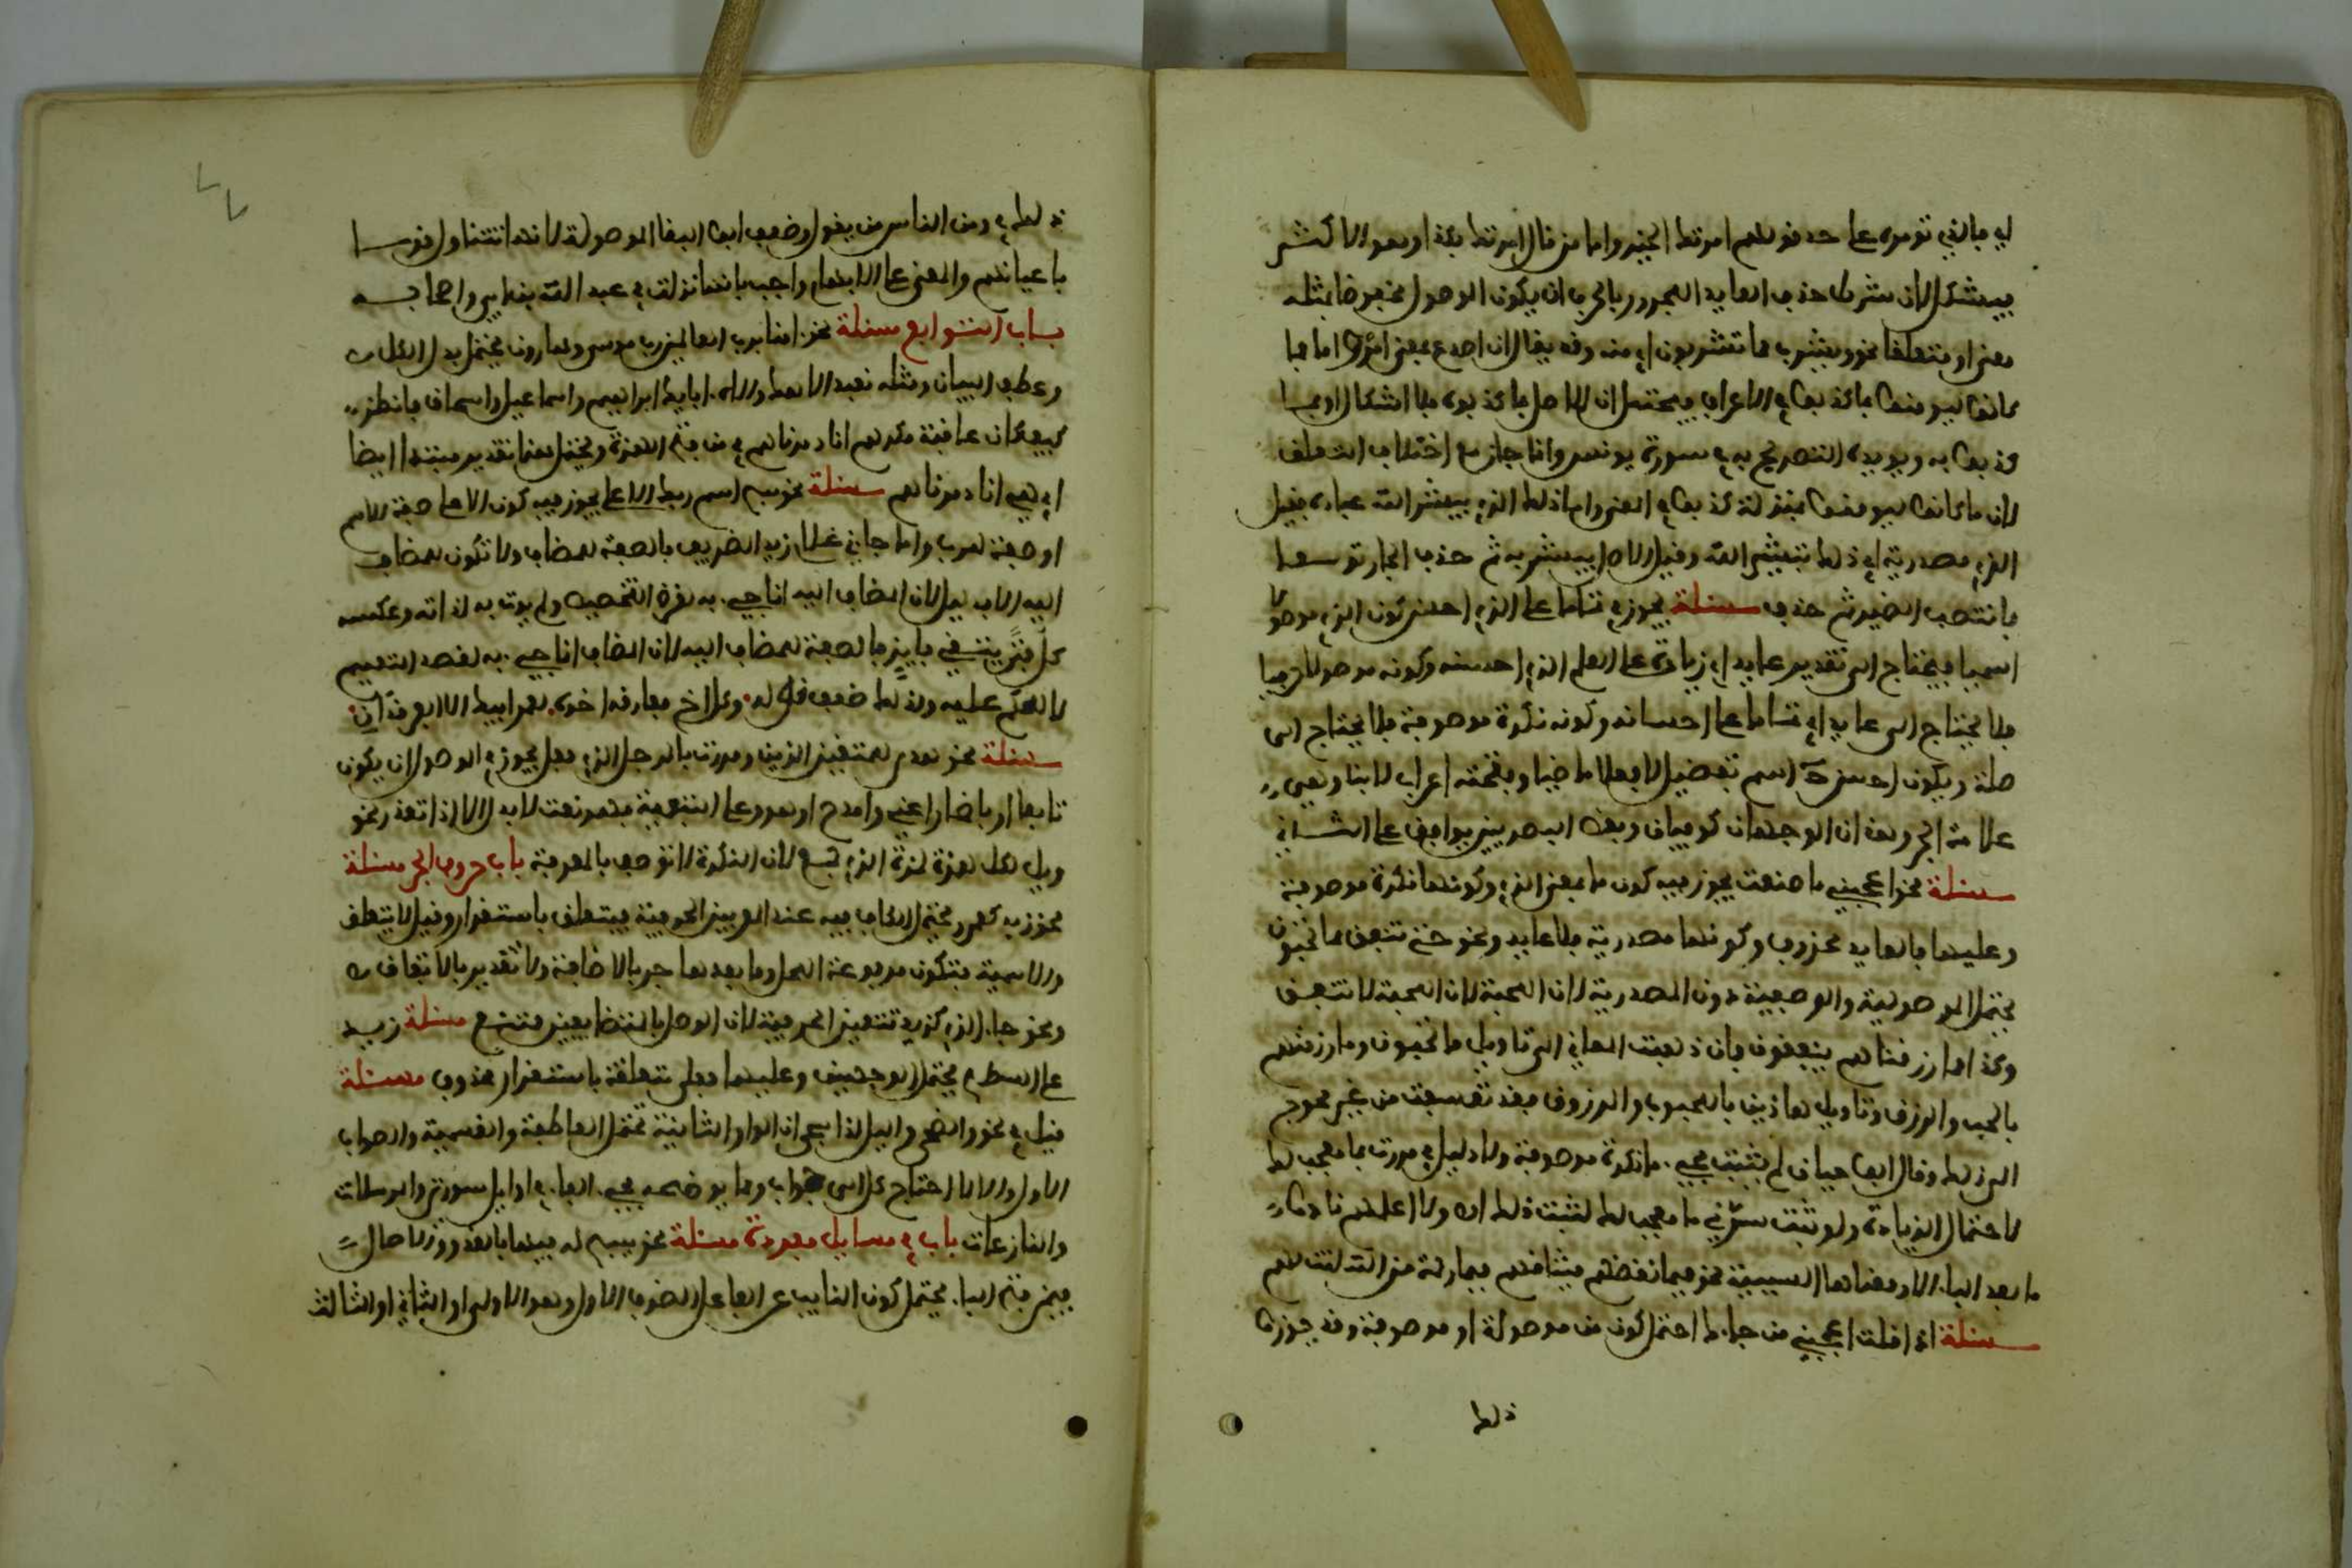 اي بالذي تومره على حد قولهم امرتك الخير واما من قال امرتك بكذا وهو الاكثر
فيشكل لان شرط حذف العايد المجرور بالحرف ان يكون الموصول مخفوضا بمثله
معنى ومتعلقا نحو ويشرب مما تشربون اي منه وقد يقال ان اصدع بمعنى اومر واما فما
كانوا ليومنوا بما كذبوا في الاعراف فيحتمل ان الاصل بما كذبوه فلا اشكال او بما
كذبوا به ويويده التصريح به في سورة يونس وانما جاز مع اختلاف المتعلق
لان ما كانوا ليومنوا بمنزلة كذبوا في المعنى واما ذلك الذي يبشر الله عباده فقيل
الذي مصدرية اي ذلك تبشير الله وقيل الاصل يبشر به ثم حذف الجار توسعا
فانتصب الضمير ثم حذف مسئلة يجوز في تماما على الذي احسن كون الذي موصولا
اسميا فيحتاج الى تقدير عايد اي زيادة على العلم الذي احسنه وكونه موصولا حرفيا
فلا يحتاج الى عايد اي تماما على احسانه وكونه نكرة موصوفة فلا يحتاج الى
صلة ويكون احسن ح اسم تفضيل لا فعلا ماضيا وفتحته اعراب لا بنا وهي
علامة الجر وهذان الوجهان كوفيان وبعض البصريين يوافق على الثاني
مسئلة نحو اعجبني ما صنعت يجوز فيه كون ما بمعنى الذي وكونها نكرة موصوفة
وعليهما فالعايد محذوف وكونها مصدرية فلا عايد ونحو حتى تنفقوا مما تحبون
يحتمل الموصولية والموصوفية دون المصدرية لان المحبة لا تنفق
وكذا مما رزقناهم ينفقون فان ذهبت الى تاويل ما تحبون وما رزقنهم
بالحب والرزق وتاويل هاذين بالمحبوب والمرزوق فقد تعسفت من غير محوج
الى ذلك وقال ابو حيان لم يثبت مجي ما نكرة موصوفة ولا دليل في مررت بما معجب لك
لاحتمال الزيادة ولو ثبت سرني ما معجب لك لثبت ذلك اه ولا اعلمهم زادوا
ما بعد البا الا ومعناها السببية نحو فبما نقضهم ميثاقهم فبما رحمة من الله لنت لهم
مسئلة اذا قلت اعجبني من جاءك احتمل كون من موصولة او موصوفة وقد جوزوا
ذلك
ذلك في ومن الناس من يقول وضعف ابو البقا الموصولة لانها تتناول قوما
باعيانهم والمعنى على الابهام واجيب بانها نزلت في عبد الله بن ابي واصحابه
باب التوابع مسئلة نحو امنا برب العالمين رب موسى وهارون يحتمل بدل الكل
وعطف البيان ومثله نعبد الاهك واله ابايك ابراهيم واسماعيل واسحاق فانظر
كيف كان عاقبة مكرهم انا دمرناهم في من فتح الهمزة ويحتمل هذا تقدير مبتدا ايضا
اي هي انا دمرناهم مسئلة نحو سبح اسم ربك الاعلى يجوز فيه كون الاعلى صفة للاسم
او صفة للرب واما جاني غلام زيد الظريف فالصفة للمضاف ولا تكون للمضاف
اليه الا بدليل لان المضاف اليه انما جيء به لغرض التخصيص ولم يوت به لذاته وعكسه
كل فتى يتقي فايز فالصفة للمضاف اليه لان المضاف انما جيء به لقصد التعميم
لا للحكم عليه ولذلك ضعف قوله وكل اخ مفارقه اخوه لعمر ابيك الا الفرقدان
مسئلة نحو هدى للمتقين الذين ومررت بالرجل الذي فعل يجوز في الموصول ان يكون
تابعا او باضمار اعني وامدح او هو وعلى التبعية فهو نعت لا بدل الا اذا تعذر نحو
ويل لكل همزة لمزة الذي جمع لان النكرة لا توصف بالمعرفة باب حروف الجر مسئلة
نحو زيد كعمرو يحتمل الكاف فيه عند المعربين الحرفية فيتعلق باستقرار وقيل لا يتعلق
والاسمية فتكون مرفوعة المحل وما بعدها جر بالاضافة ولا تقدير بالاتفاق
ونحو جا الذي كزيد تتعين الحرفية لان الوصل بالمتضايفين ممتنع مسئلة زيد
على السطح يحتمل الوجهين وعليهما فهي متعلقة باستقرار محذوف مسئلة
قيل في نحو والضحى والليل اذا سجى ان الواو الثانية تحتمل العاطفة والقسمية والصواب
الاول والا لاحتاج كل الى جواب ومما يوضحه مجي الفا في اوايل سورتي والمرسلات
والنازعات باب في مسايل مفردة مسئلة نحو يسبح له فيها بالغدو والاصال
فيمن فتح البا يحتمل كون النايب عن الفاعل الظرف الاول وهو الاولى او الثاني او الثالث